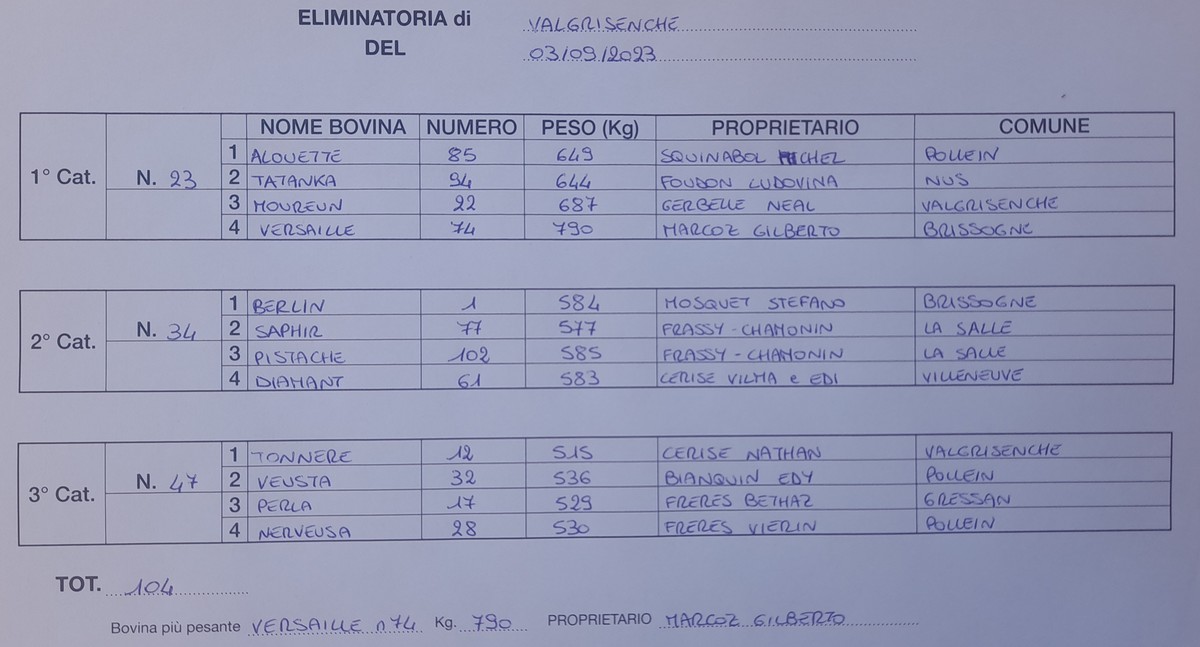 ELIMINATORIA di VALGRISENCHE
DEL 03/09/2023
NOME BOVINA NUMERO PESO (Kg) PROPRIETARIO COMUNE
1° Cat. N. 23
1 ALOUETTE 85 649 SQUINABOL MICHEL POLLEIN
2 TATANKA 94 644 FOUDON LUDOVINA NUS
3 MOUREUN 22 687 GERBELLE NEAL VALGRISENCHE
4 VERSAILLE 74 790 MARCOZ GILBERTO BRISSOGNE
2° Cat. N. 34
1 BERLIN 1 584 MOSQUET STEFANO BRISSOGNE
2 SAPHIR 77 577 FRASSY-CHAMONIN LA SALLE
3 PISTACHE 102 585 FRASSY-CHAMONIN LA SALLE
4 DIAMANT 61 583 CERISE VILMA e EDI VILLENEUVE
3° Cat. N. 47
1 TONNERE 12 515 CERISE NATHAN VALGRISENCHE
2 VEUSTA 32 536 BIANQUIN EDY POLLEIN
3 PERLA 17 529 FRERES BETHAZ GRESSAN
4 NERVEUSA 28 530 FRERES VIERIN POLLEIN
TOT. 104
Bovina più pesante VERSAILLE n74 Kg. 790 PROPRIETARIO MARCOZ GILBERTO